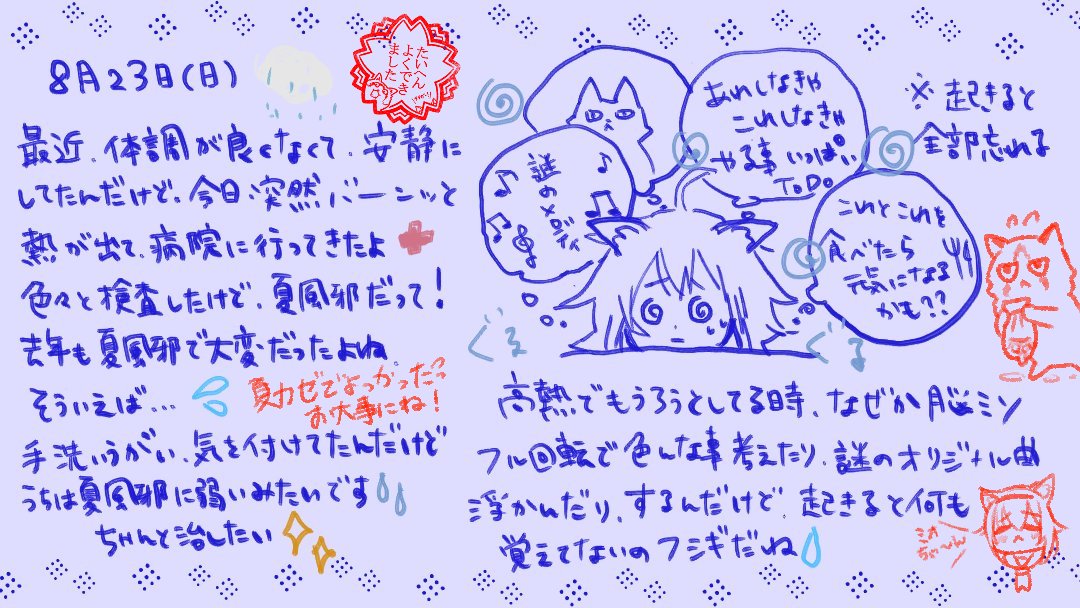 8月23日(日)
たいへん
よくでき
ました
最近、体調が良くなくて、安静に
してたんだけど、今日、突然バーンッと
熱が出て、病院に行ってきたよ
色々と検査したけど、夏風邪だって！
去年も夏風邪で大変だったよね
そういえば…
夏カゼでよかった…?
お大事にね！
手洗いうがい、気を付けてたんだけど
うちは夏風邪に弱いみたいです
ちゃんと治したい
謎の
メロディ
あれしなきゃ
これしなきゃ
やる事いっぱい
ToDo
※起きると
全部忘れる
これとこれを
食べたら
元気になる
かも??
ぐる
ぐる
高熱でもうろうとしてる時、なぜか脳ミソ
フル回転で色んな事考えたり、謎のオリジナル曲
浮かんだり、するんだけど、起きると何も
覚えてないのフシギだね
ミオ
ちゃーん